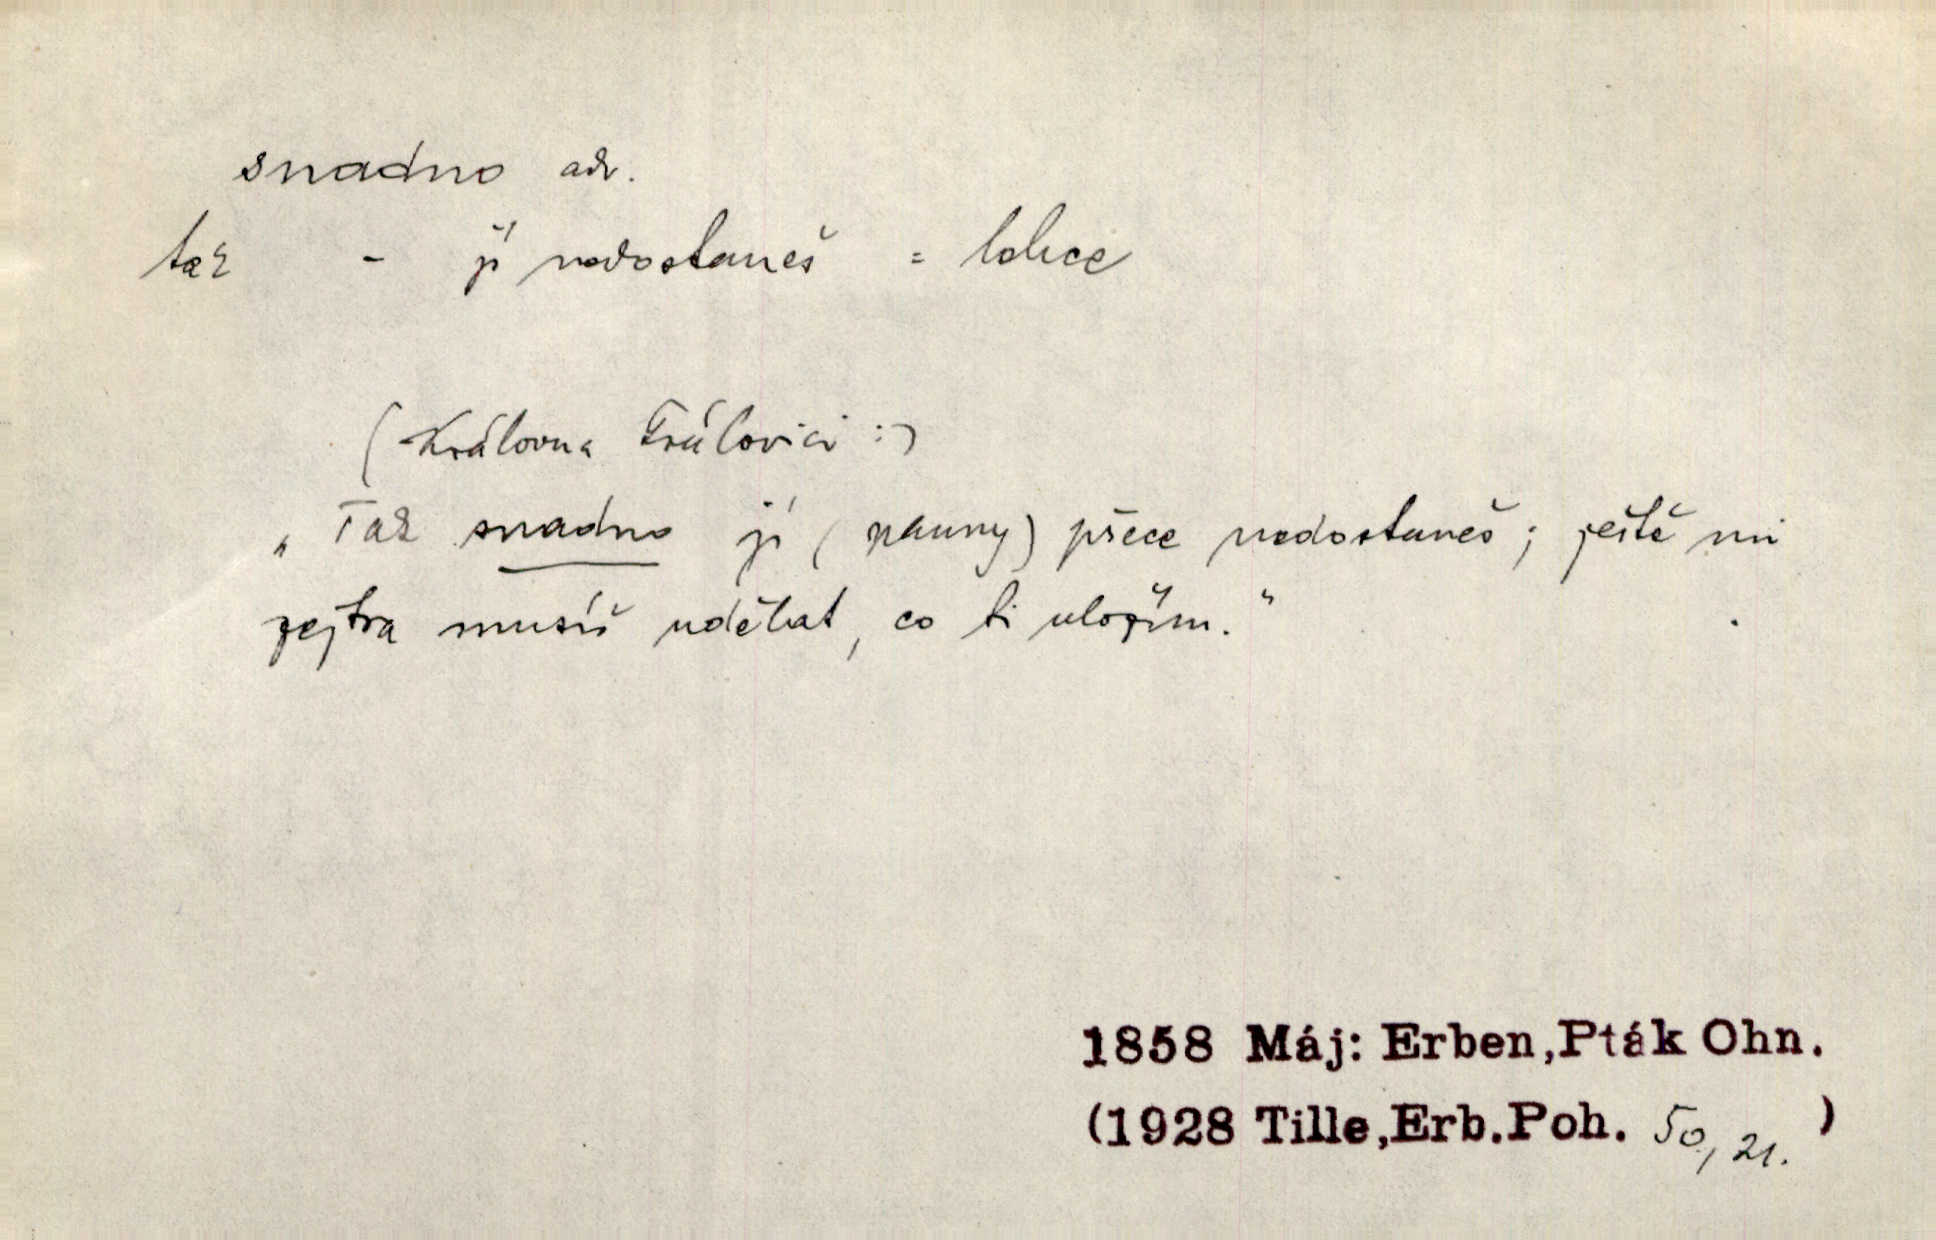 snadno adv.
tak - jí nedostaneš = lehce
(Královna královici :)
„Tak snadno jí (panny) přece nedostaneš; ještě mi
zejtra musíš udělat, co ti uložím."
1858 Máj: Erben,Pták Ohn.
(1928 Tille,Erb.Poh. 50, 21. )